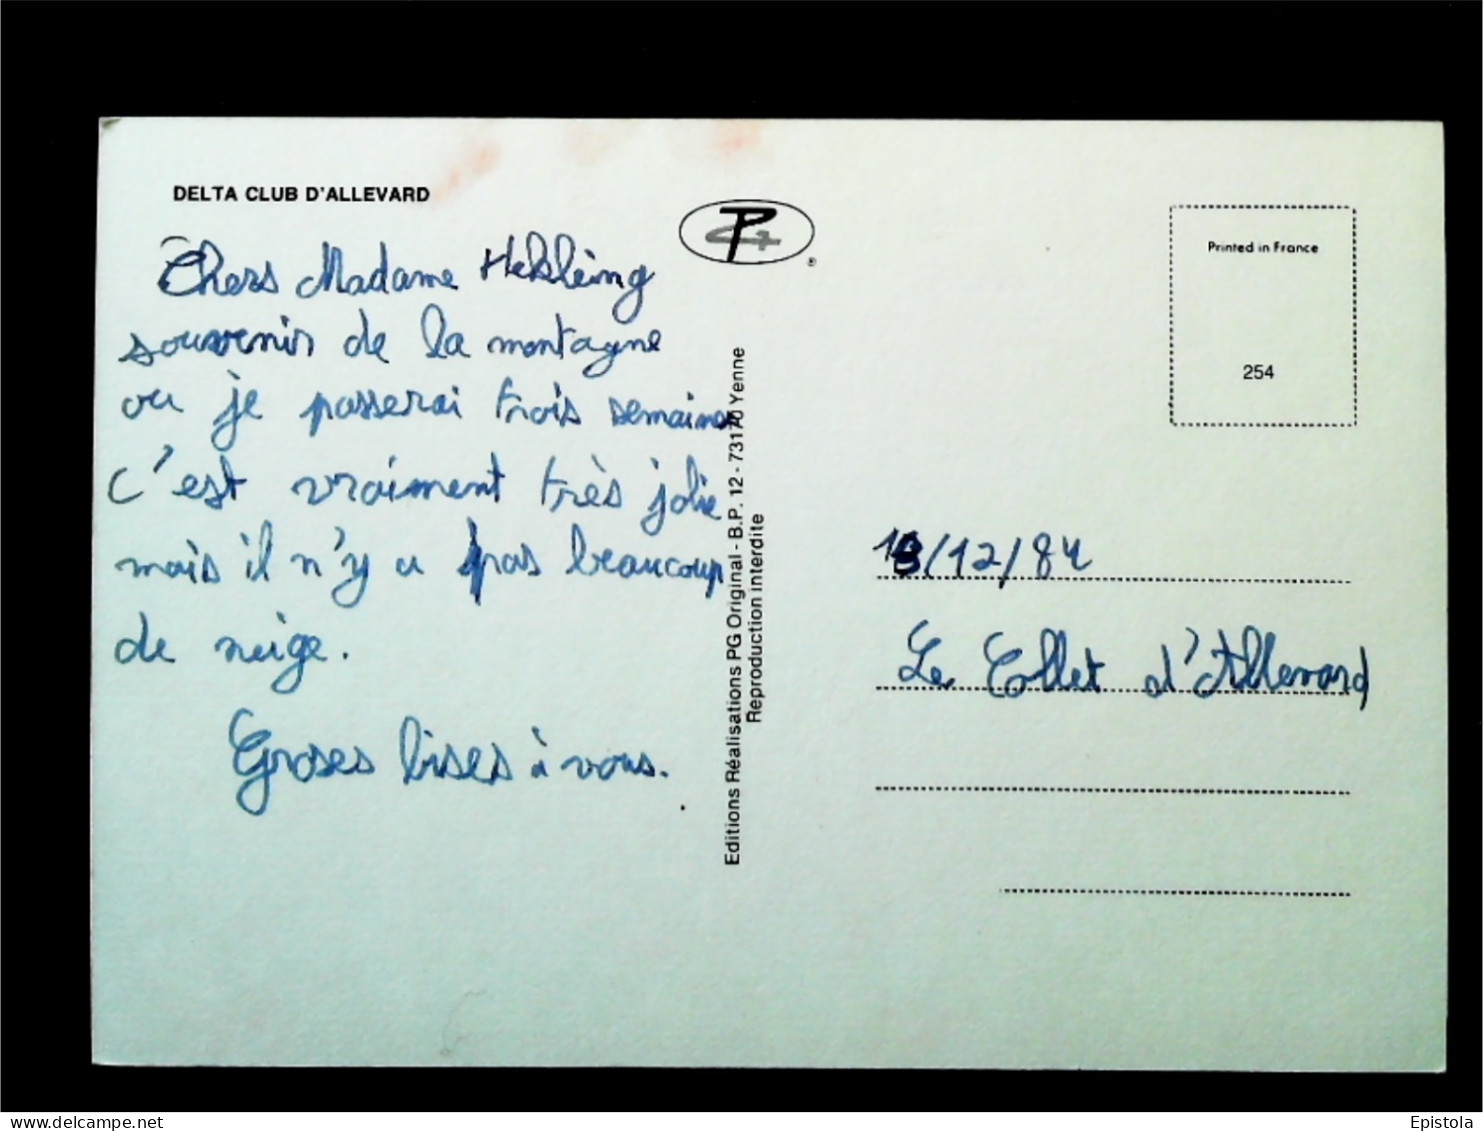 DELTA CLUB D'ALLEVARD
Chers Madame
souvenir de la montagne
ou je passerai trois semaines
c'est vraiment très jolie
mais il n'y a pas beaucoup
de neige.
Groses bises à vous.
Editions Réalisations PG Original - B.P. 12 - 73170 Yenne
Reproduction interdite
Printed in France
254
/12/84
Le Collet d'Allevard
delcampe.net
Epistola